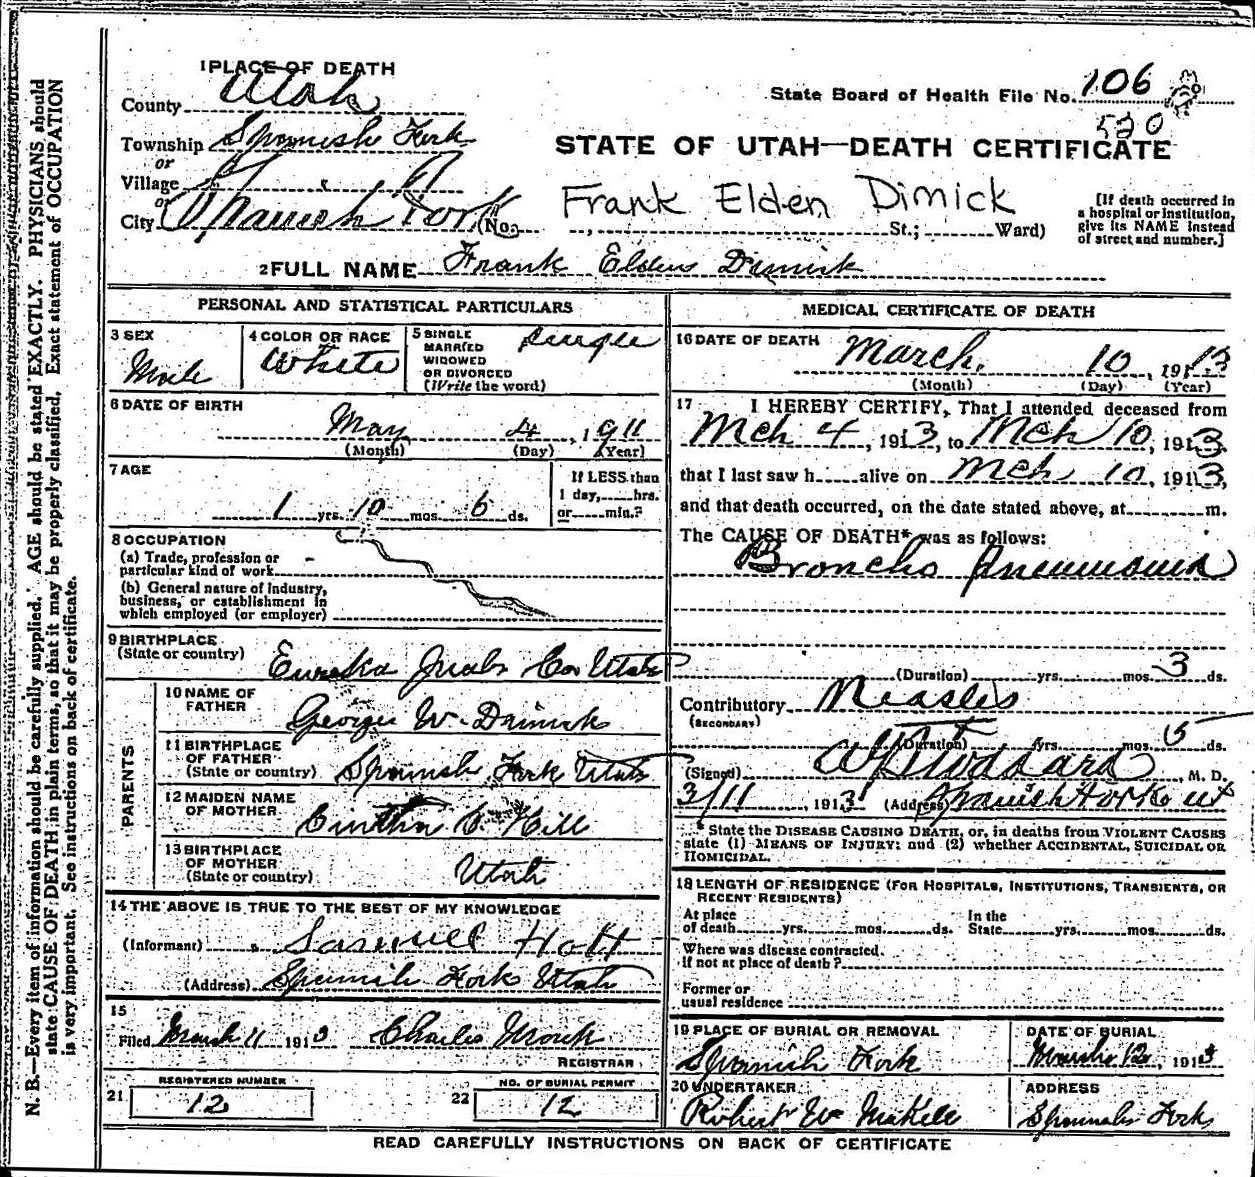 1 PLACE OF DEATH
County Utah
Township Spanish Fork
or
Village
or
City Spanish Fork (No.
State Board of Health File No. 106
520
STATE OF UTAH—DEATH CERTIFICATE
Frank Elden Dimick
St.; Ward)
[If death occurred in
a hospital or institution,
give its NAME instead
of street and number.]
2 FULL NAME Frank Elden Dimick
PERSONAL AND STATISTICAL PARTICULARS
3 SEX
Male
4 COLOR OR RACE
White
5 SINGLE
MARRIED
WIDOWED
OR DIVORCED
(Write the word)
Single
6 DATE OF BIRTH
May 4, 1911
(Month) (Day) (Year)
7 AGE
1 yrs. 10 mos. 6 ds.
If LESS than
1 day, hrs.
or min.?
8 OCCUPATION
(a) Trade, profession or
particular kind of work
(b) General nature of industry,
business, or establishment in
which employed (or employer)
9 BIRTHPLACE
(State or country)
Eureka Juab Co Utah
PARENTS
10 NAME OF
FATHER
George W. Dimick
11 BIRTHPLACE
OF FATHER
(State or country)
Spanish Fork Utah
12 MAIDEN NAME
OF MOTHER
Cinthia C. Hill
13 BIRTHPLACE
OF MOTHER
(State or country)
Utah
14 THE ABOVE IS TRUE TO THE BEST OF MY KNOWLEDGE
(Informant) Samuel Hott
(Address) Spanish Fork Utah
15
Filed March 11 1913 Charles Monk
REGISTRAR
21 REGISTERED NUMBER
12
22 NO. OF BURIAL PERMIT
12
MEDICAL CERTIFICATE OF DEATH
16 DATE OF DEATH
March. 10, 1913
(Month) (Day) (Year)
17 I HEREBY CERTIFY, That I attended deceased from
Mch 4, 1913, to Mch 10, 1913,
that I last saw h alive on Mch 10, 1913,
and that death occurred, on the date stated above, at m.
The CAUSE OF DEATH* was as follows:
Broncho Pneumonia
(Duration) yrs. mos. 3 ds.
Contributory Measles
(SECONDARY)
(Duration) yrs. mos. 5 ds.
(Signed) Stoddard, M. D.
3/11, 1913 (Address) Spanish Fork ut
* State the DISEASE CAUSING DEATH, or, in deaths from VIOLENT CAUSES
state (1) MEANS OF INJURY; and (2) whether ACCIDENTAL, SUICIDAL OR
HOMICIDAL.
18 LENGTH OF RESIDENCE (FOR HOSPITALS, INSTITUTIONS, TRANSIENTS, OR
RECENT RESIDENTS)
At place
of death yrs. mos. ds.
In the
State yrs. mos. ds.
Where was disease contracted.
If not at place of death?
Former or
usual residence
19 PLACE OF BURIAL OR REMOVAL
Spanish Fork
DATE OF BURIAL
March 12, 1913
20 UNDERTAKER
Robert W. McKell
ADDRESS
Spanish Fork
READ CAREFULLY INSTRUCTIONS ON BACK OF CERTIFICATE
N. B.—Every item of information should be carefully supplied. AGE should be stated EXACTLY. PHYSICIANS should
state CAUSE OF DEATH in plain terms, so that it may be properly classified. Exact statement of OCCUPATION
is very important. See instructions on back of certificate.